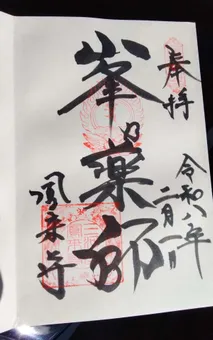 奉拝
令和八年
二月一日
峯の薬師
鳳来寺